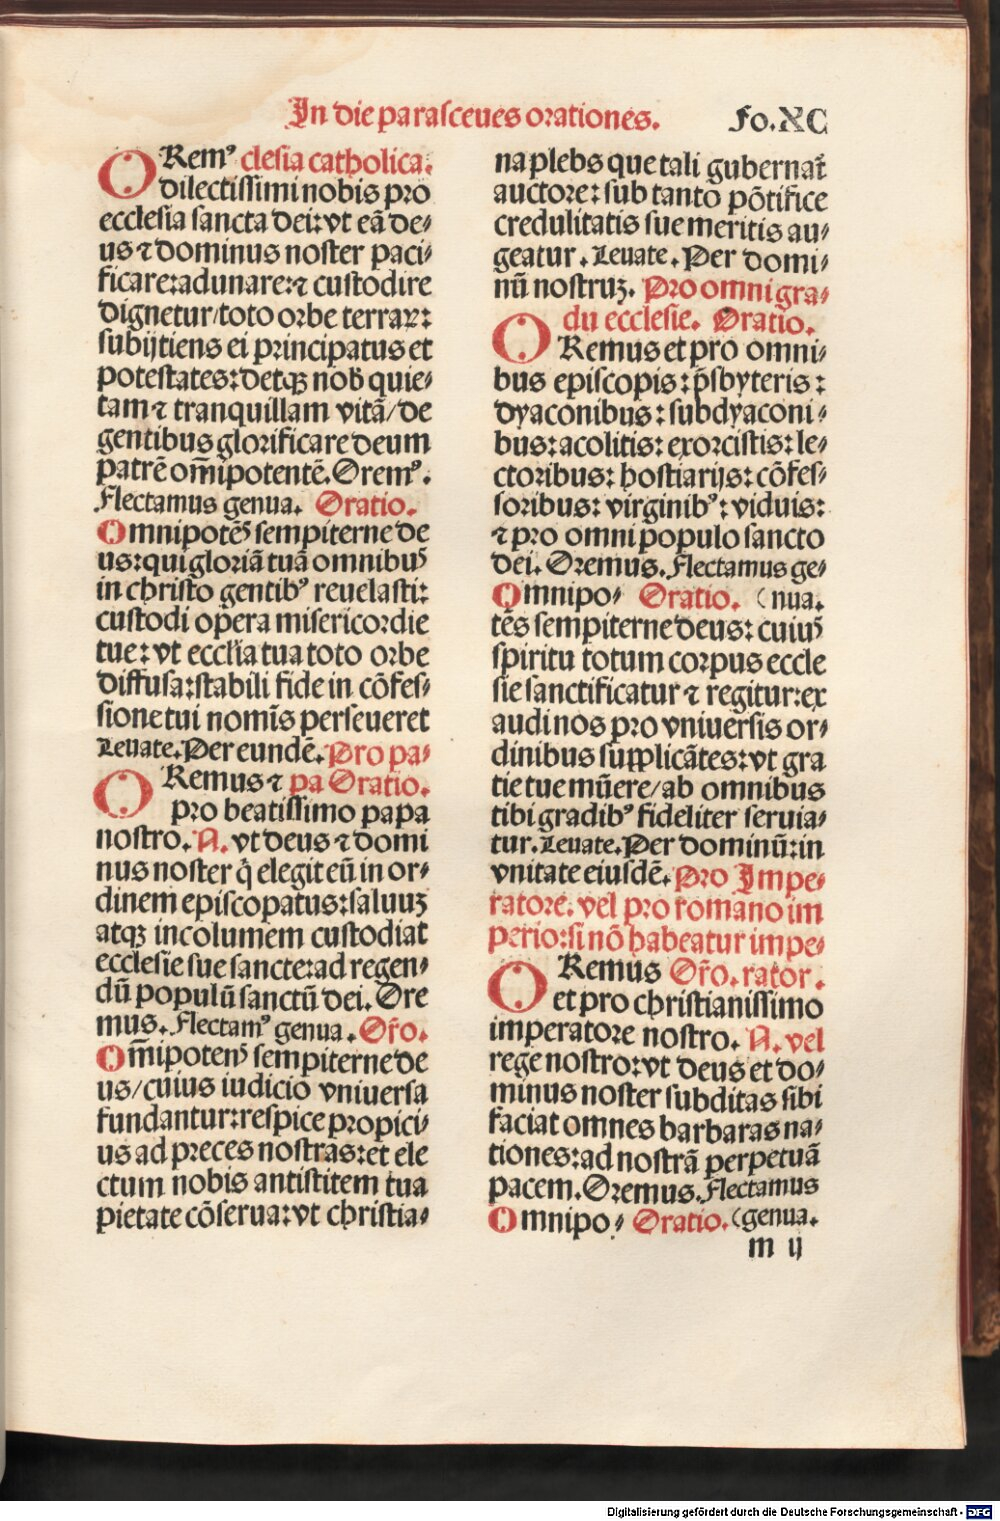 In die parasceues orationes. Fo.XC
ORemꝰ clesia catholica.
dilectissimi nobis pro
ecclesia sancta dei: vt eā de⸗
us ⁊ dominus noster paci⸗
ficare: adunare: ⁊ custodire
dignetur/ toto orbe terraꝝ:
subijtiens ei principatus et
potestates: detqꝫ nob̄ quie⸗
tam ⁊ tranquillam vitā/ de
gentibus glorificare deum
patrē om̄ipotentē. Oremꝰ.
Flectamus genua. Oratio.
Omnipotēs sempiterne de
us: qui gloriā tuā omnibus
in christo gentibꝰ reuelasti:
custodi opera misericordie
tue: vt eccl'ia tua toto orbe
diffusa: stabili fide in cōfes⸗
sione tui nomīs perseueret
Leuate. Per eundē. Pro pa⸗
ORemus ⁊ pa Oratio.
pro beatissimo papa
nostro. N. vt deus ⁊ domi
nus noster q̄ elegit eū in or⸗
dinem episcopatus: saluuꝫ
atqꝫ incolumem custodiat
ecclesie sue sancte: ad regen⸗
dū populū sanctū dei. Ore
mus. Flectamꝰ genua. Or̄o.
Om̄ipotens sempiterne de
us/ cuius iudicio vniuersa
fundantur: respice propici⸗
us ad preces nostras: et ele
ctum nobis antistitem tua
pietate cōserua: vt christia⸗
na plebs que tali gubernat̄
auctore: sub tanto pōtifice
credulitatis sue meritis au⸗
geatur. Leuate. Per domi⸗
nū nostruꝫ. Pro omni gra⸗
du ecclesie. Oratio.
ORemus et pro omni⸗
bus episcopis: p̄sbyteris:
dyaconibus: subdyaconi⸗
bus: acolitis: exorcistis: le⸗
ctoribus: hostiarijs: cōfes⸗
soribus: virginibꝰ: viduis:
⁊ pro omni populo sancto
dei. Oremus. Flectamus ge⸗
Omnipo⸗ Oratio. (nua.
tēs sempiterne deus: cuius
spiritu totum corpus eccle
sie sanctificatur ⁊ regitur: ex
audi nos pro vniuersis or⸗
dinibus supplicātes: vt gra
tie tue mūere/ ab omnibus
tibi gradibꝰ fideliter seruia⸗
tur. Leuate. Per dominū: in
vnitate eiusdē. Pro Impe⸗
ratore. vel pro romano im
perio: si nō habeatur impe⸗
ORemus Or̄o. rator.
et pro christianissimo
imperatore nostro. N. vel
rege nostro: vt deus et do⸗
minus noster subditas sibi
faciat omnes barbaras na⸗
tiones: ad nostrā perpetuā
pacem. Oremus. Flectamus
Omnipo⸗ Oratio. (genua.
m ij
Digitalisierung gefördert durch die Deutsche Forschungsgemeinschaft - DFG